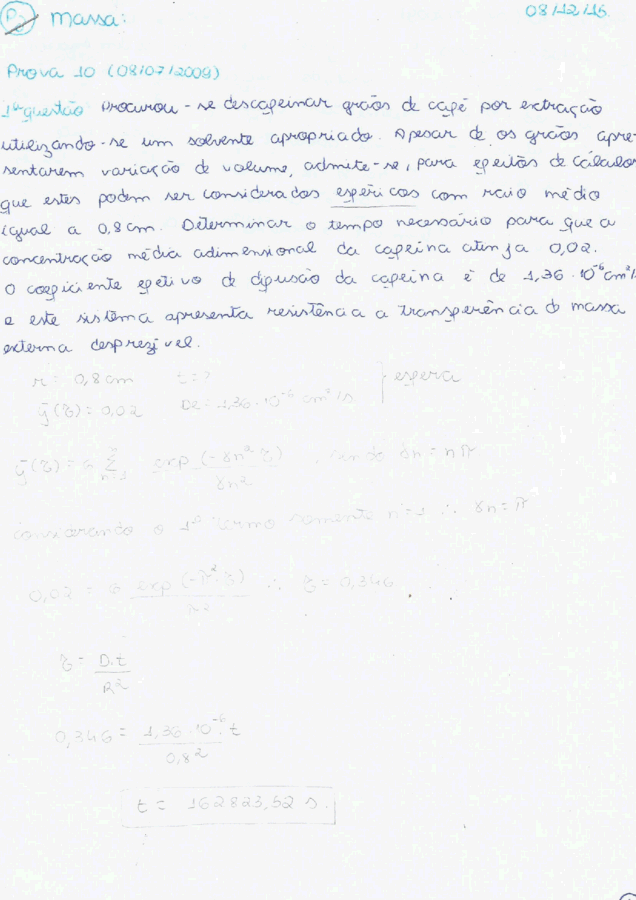 P2 massa:
08/12/15.
Prova 10 (08/07/2009)
1ª questão Procurou-se descafeinar grãos de café por extração
utilizando-se um solvente apropriado. Apesar de os grãos apre-
sentarem variação de volume, admite-se, para efeitos de cálculos
que estes podem ser considerados esféricos com raio médio
igual a 0,8cm. Determinar o tempo necessário para que a
concentração média adimensional da cafeína atinja 0,02.
O coeficiente efetivo de difusão da cafeína é de 1,36·10⁻⁶cm²/s
e este sistema apresenta resistência a transferência de massa
externa desprezível.
r = 0,8cm t = ? } esfera
ȳ(τ) = 0,02 De = 1,36·10⁻⁶ cm²/s
ȳ(τ) = 6 Σ n=1 exp(-γn² τ) / γn² , sendo γn = nπ
considerando o 1º termo somente n=1 ∴ γn = π
0,02 = 6 exp(-π² τ) / π² ∴ τ = 0,346
τ = D.t / R²
0,346 = 1,36·10⁻⁶ t / 0,8²
t = 162823,52 s.